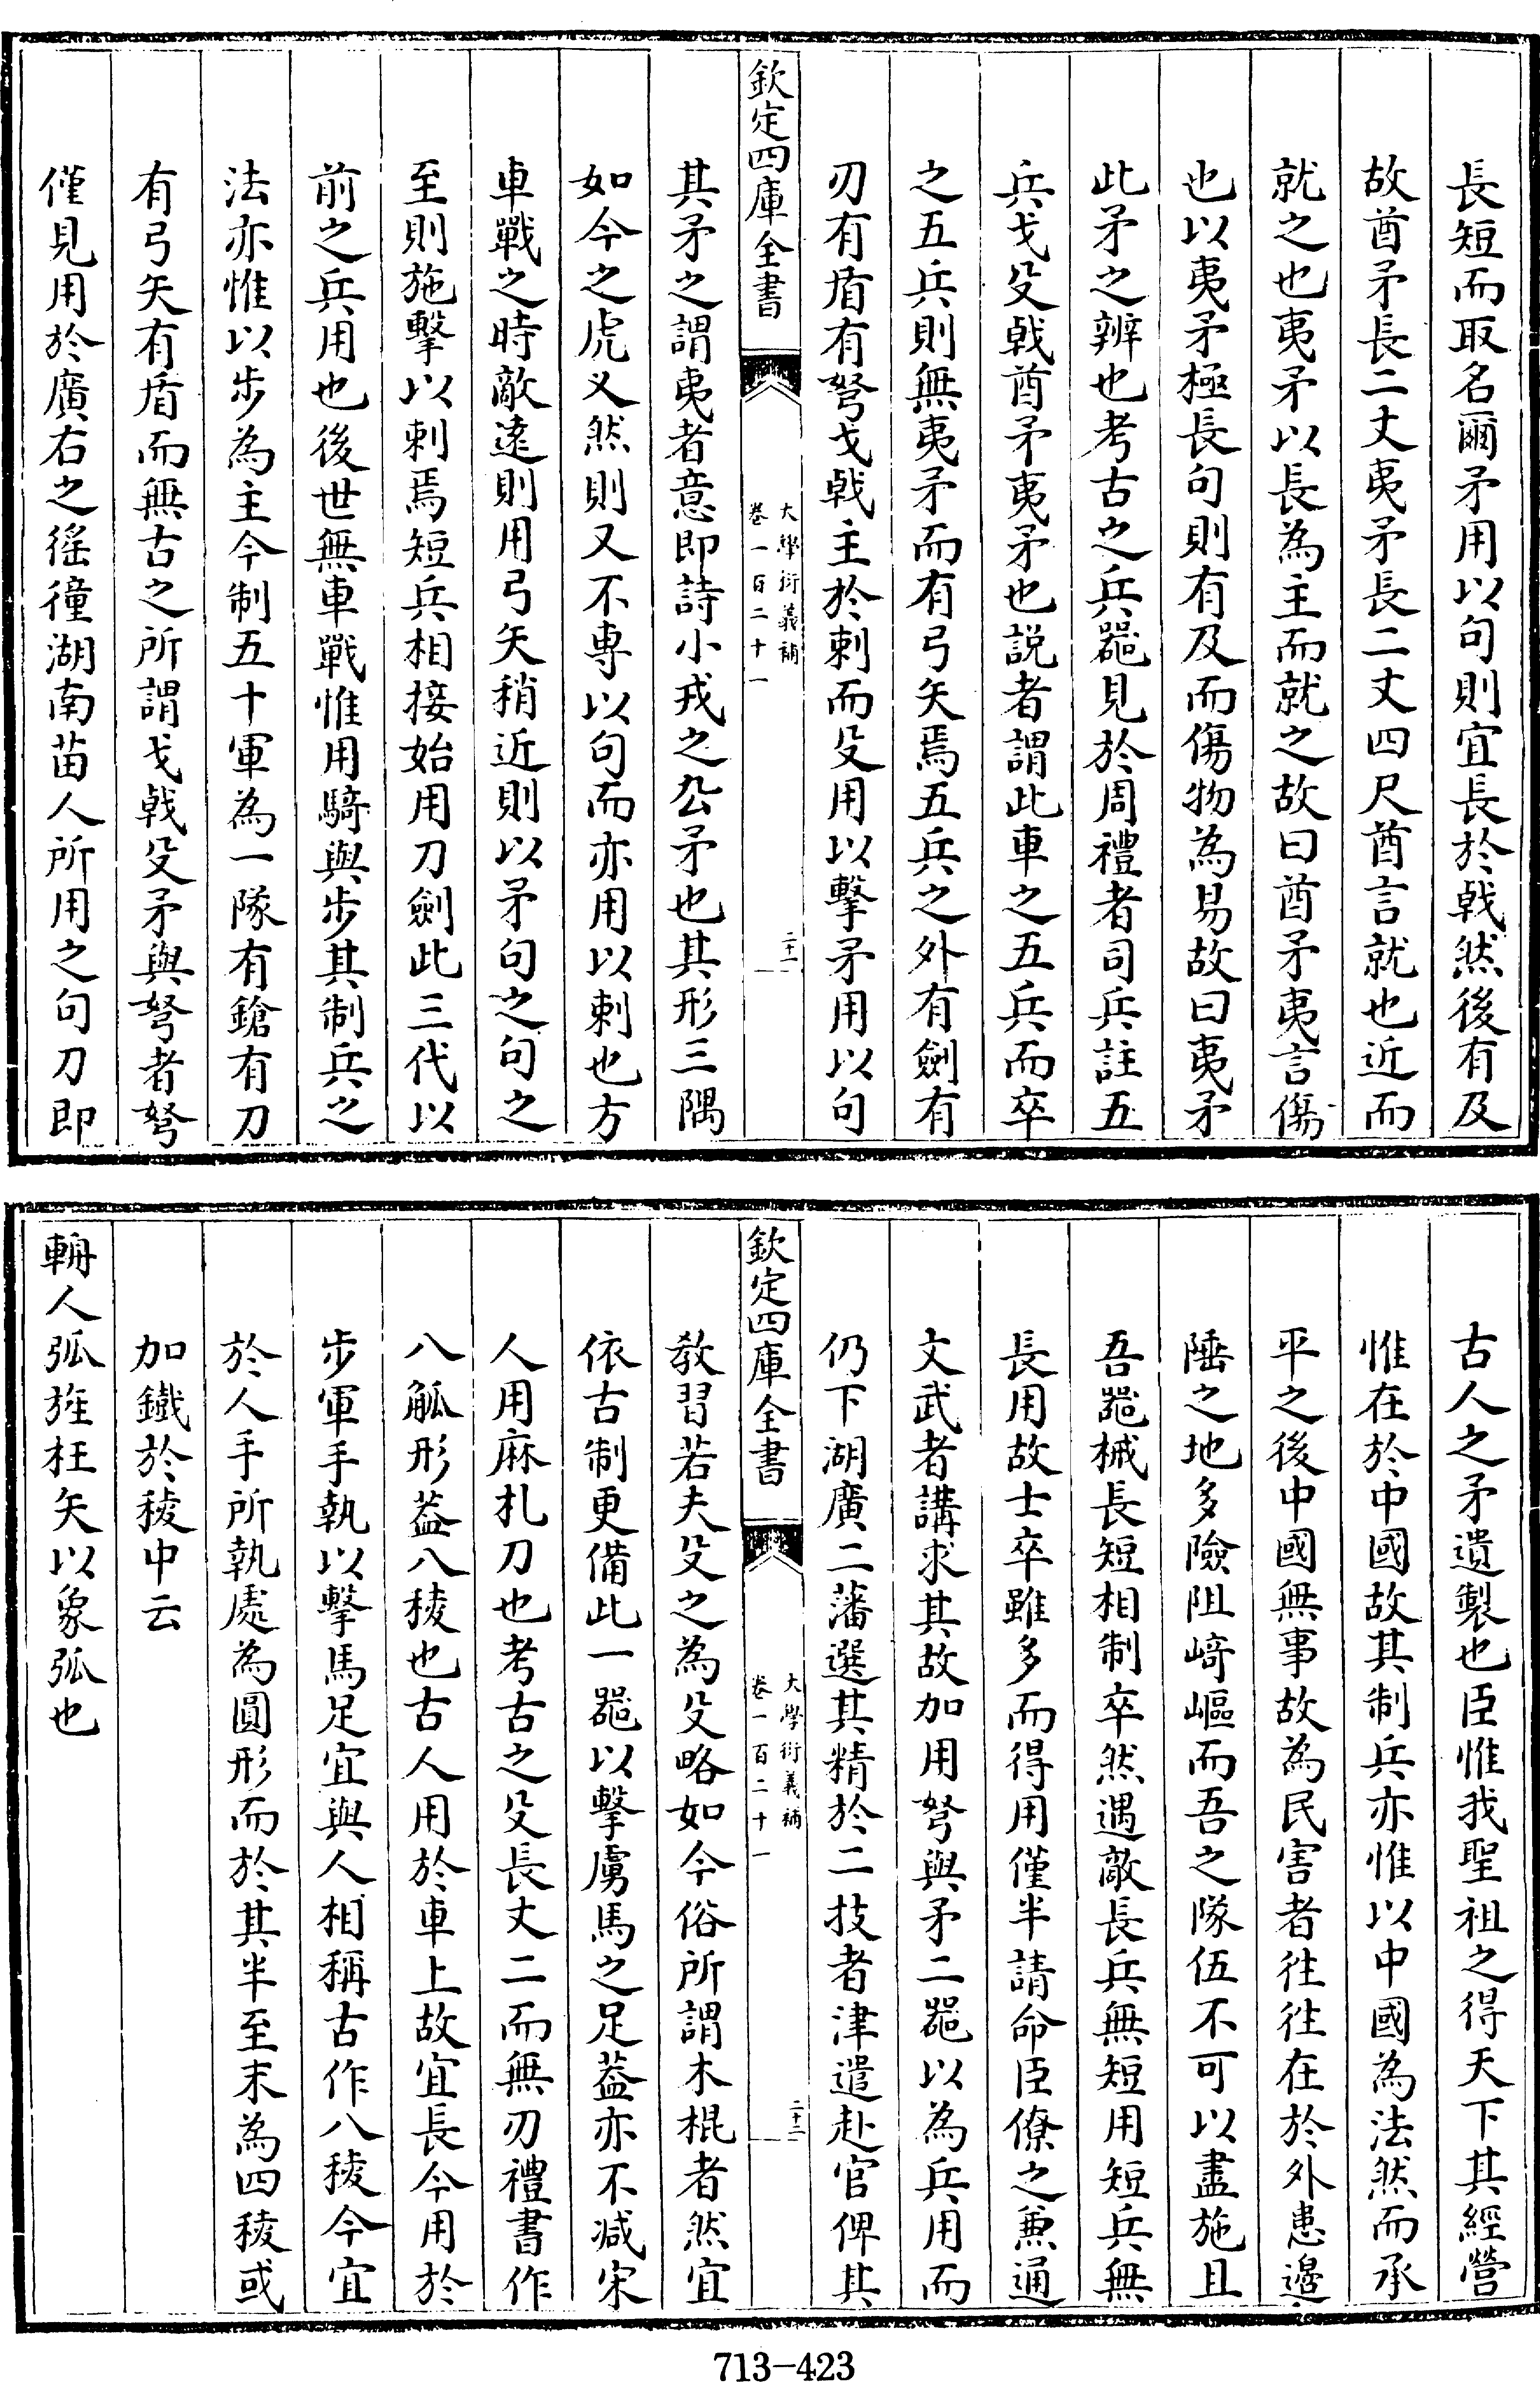 長短而取名爾矛用以句則宜長於㦸然後有及
故酋矛長二丈夷矛長二丈四尺酋言就也近而
就之也夷矛以長為主而就之故曰酋矛夷言傷
也以夷矛極長句則有及而傷物為易故曰夷矛
此矛之辨也考古之兵噐見於周禮者司兵註五
兵戈殳㦸酋矛夷矛也説者謂此車之五兵而卒
之五兵則無夷矛而有弓矢焉五兵之外有劍有
刃有盾有弩戈㦸主於刺而殳用以擊矛用以句
欽定四庫全書
大學衍義補
卷一百二十一
二十一
其矛之謂夷者意即詩小戎之厹矛也其形三隅
如今之虎义然則又不専以句而亦用以刺也方
車戰之時敵逺則用弓矢稍近則以矛句之句之
至則施擊以刺焉短兵相接始用刀劍此三代以
前之兵用也後世無車戰惟用騎與步其制兵之
法亦惟以步為主今制五十軍為一隊有鎗有刀
有弓矢有盾而無古之所謂戈㦸殳矛與弩者弩
僅見用於廣右之徭獞湖南苗人所用之句刀即
古人之矛遺製也臣惟我聖祖之得天下其經營
惟在於中國故其制兵亦惟以中國為法然而承
平之後中國無事故為民害者往往在於外患邊
陲之地多險阻﨑嶇而吾之隊伍不可以盡施且
吾噐械長短相制卒然遇敵長兵無短用短兵無
長用故士卒雖多而得用僅半請命臣僚之兼通
文武者講求其故加用弩與矛二噐以為兵用而
仍下湖廣二藩選其精於二技者津遣赴官俾其
欽定四庫全書
大學衍義補
卷一百二十一
二十二
教習若夫殳之為殳略如今俗所謂木棍者然宜
依古制更備此一噐以擊虜馬之足葢亦不減宋
人用麻札刀也考古之殳長丈二而無刃禮書作
八觚形葢八稜也古人用於車上故宜長今用於
步軍手執以擊馬足宜與人相稱古作八稜今宜
於人手所執處為圓形而於其半至末為四稜或
加鐵於稜中云
輈人弧旌枉矢以象弧也
713-423